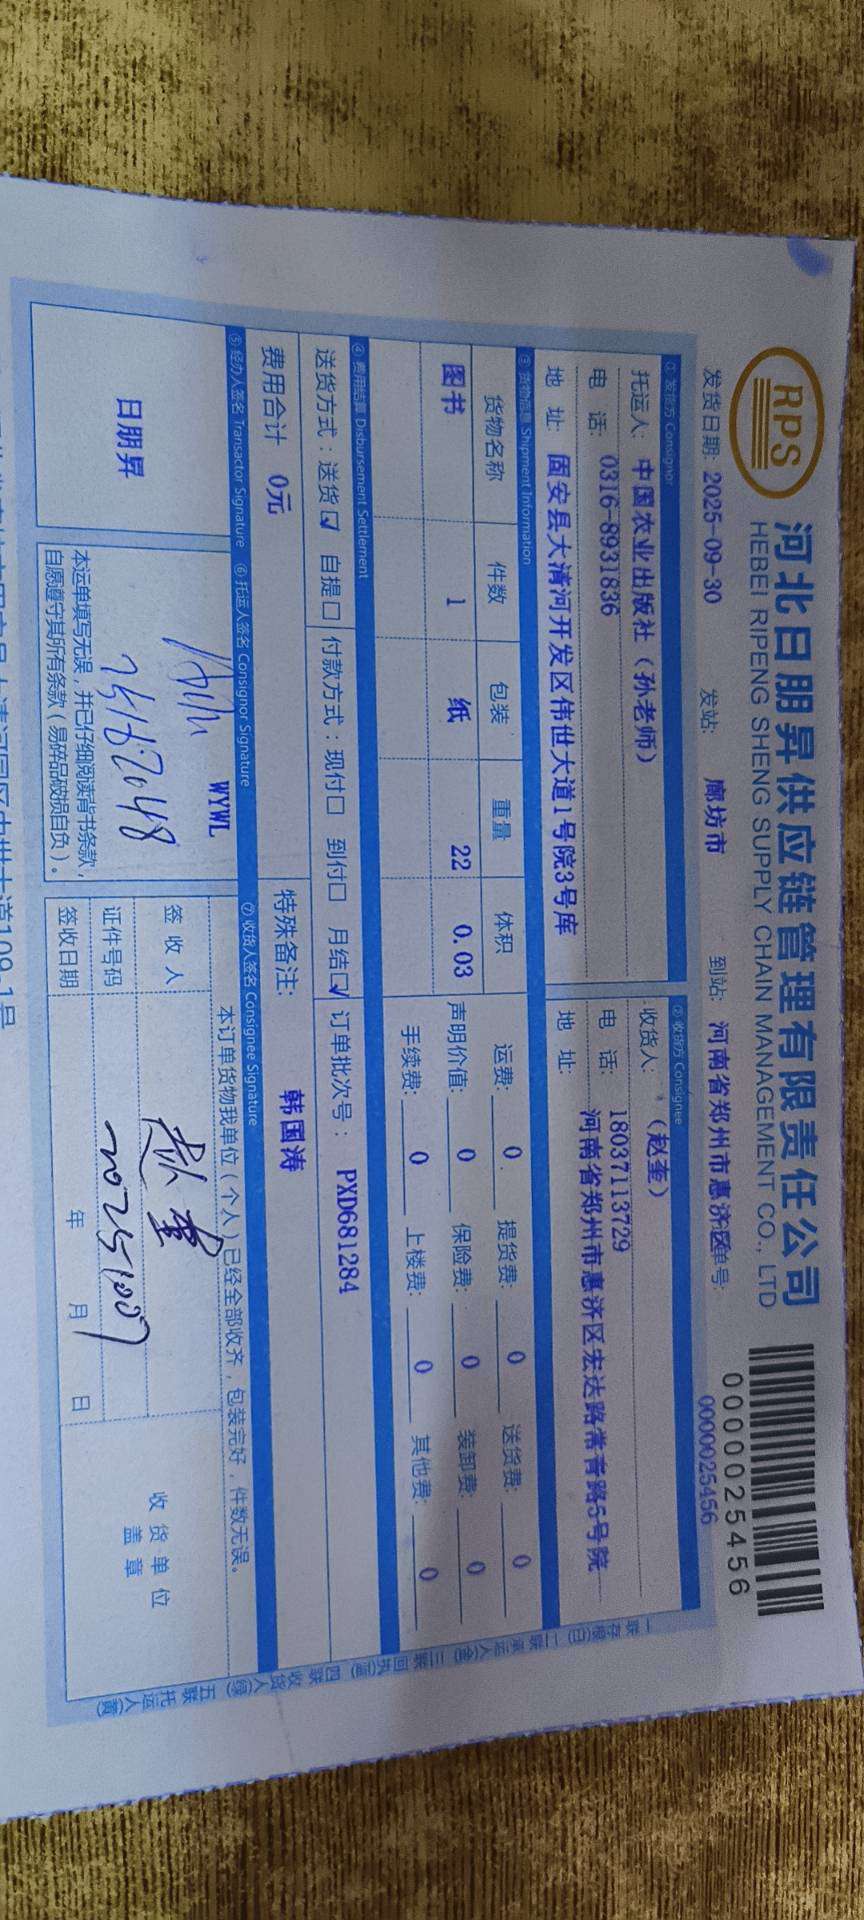 RPS
河北日朋昇供应链管理有限责任公司
HEBEI RIPENG SHENG SUPPLY CHAIN MANAGEMENT CO., LTD
0000025456
发货日期: 2025-09-30 发站: 廊坊市 到站: 河南省郑州市惠济区 单号: 0000025456
① 发货方 Consignor ② 收货方 Consignee
托运人: 中国农业出版社（孙老师） 收货人: （赵奎）
电 话: 0316-8931836 电 话: 18037113729
地 址: 固安县大清河开发区伟世大道1号院3号库 地 址: 河南省郑州市惠济区宏达路常青路5号院
③ 货物信息 Shipment Information
货物名称 件数 包装 重量 体积 运费: 0 提货费: 0 送货费: 0
图书 1 纸 22 0.03 声明价值: 0 保险费: 0 装卸费: 0
手续费: 0 上楼费: 0 其他费: 0
④ 费用结算 Disbursement Settlement
送货方式：送货☑ 自提☐ 付款方式：现付☐ 到付☐ 月结☑ 订单批次号： PXD681284
费用合计 0元 特殊备注: 韩国涛
⑤ 经办人签名 Transactor Signature ⑥ 托运人签名 Consignor Signature ⑦ 收货人签名 Consignee Signature
WYWL 本订单货物我单位（个人）已经全部收齐，包装完好，件数无误。
日朋昇
签 收 人 赵奎
证件号码 20251007
签收日期 年 月 日
收 货 单 位
盖 章
本运单填写无误，并已仔细阅读背书条款，
自愿遵守其所有条款（易碎品破损自负）。
一联 存根(白) 二联 承运人(金) 三联 回执(蓝) 四联 收货人(绿) 五联 托运人(黄)